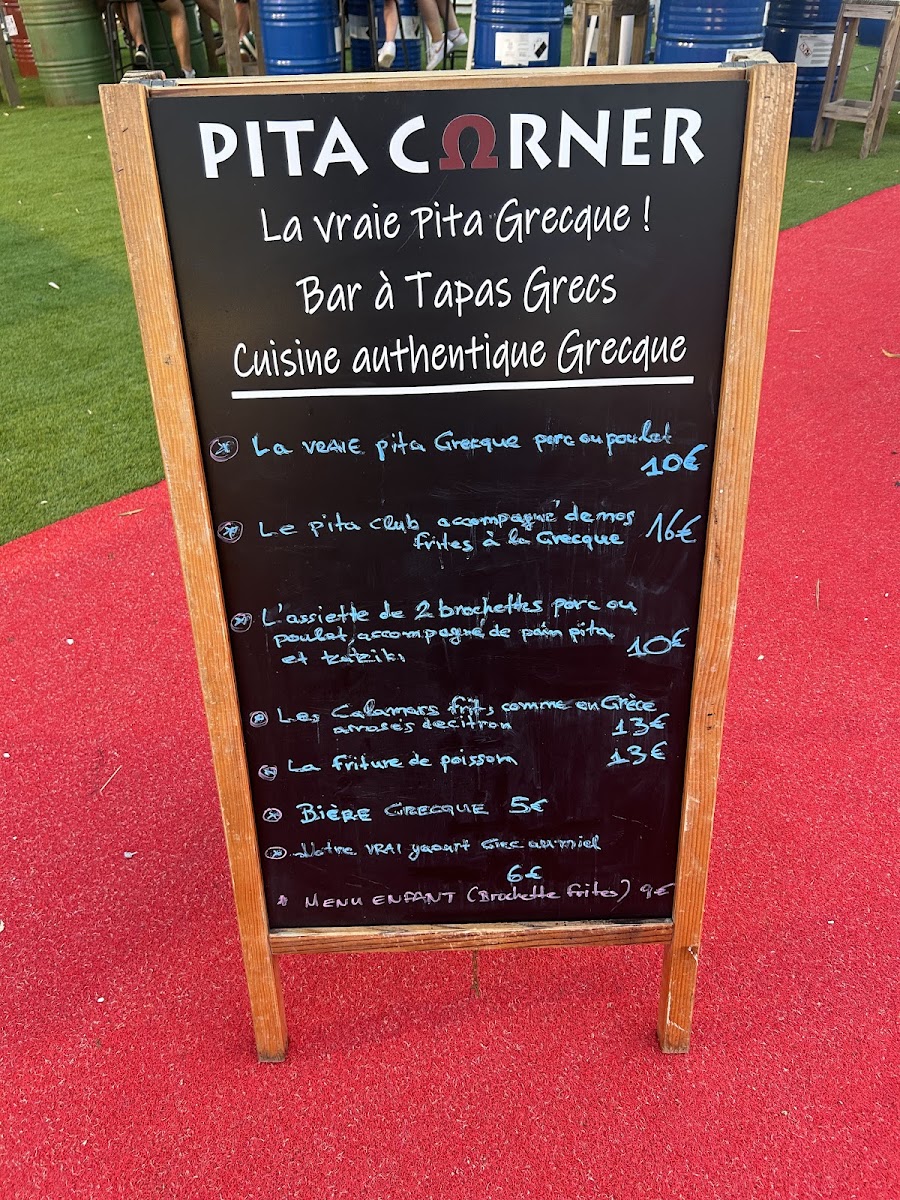 PITA CΩRNER
La vraie Pita Grecque !
Bar à Tapas Grecs
Cuisine authentique Grecque
La VRAIE pita Grecque porc ou poulet
10€
Le pita club accompagné de nos 16€
frites à la Grecque
L'assiette de 2 brochettes porc ou
poulet, accompagné de pain pita
et tzatziki 10€
Les Calamars frits comme en Grèce
arrosés de citron 13€
La friture de poisson 13€
BIÈRE GRECQUE 5€
Notre VRAI yaourt GREC au miel
6€
* MENU ENFANT (Brochette frites) 9€